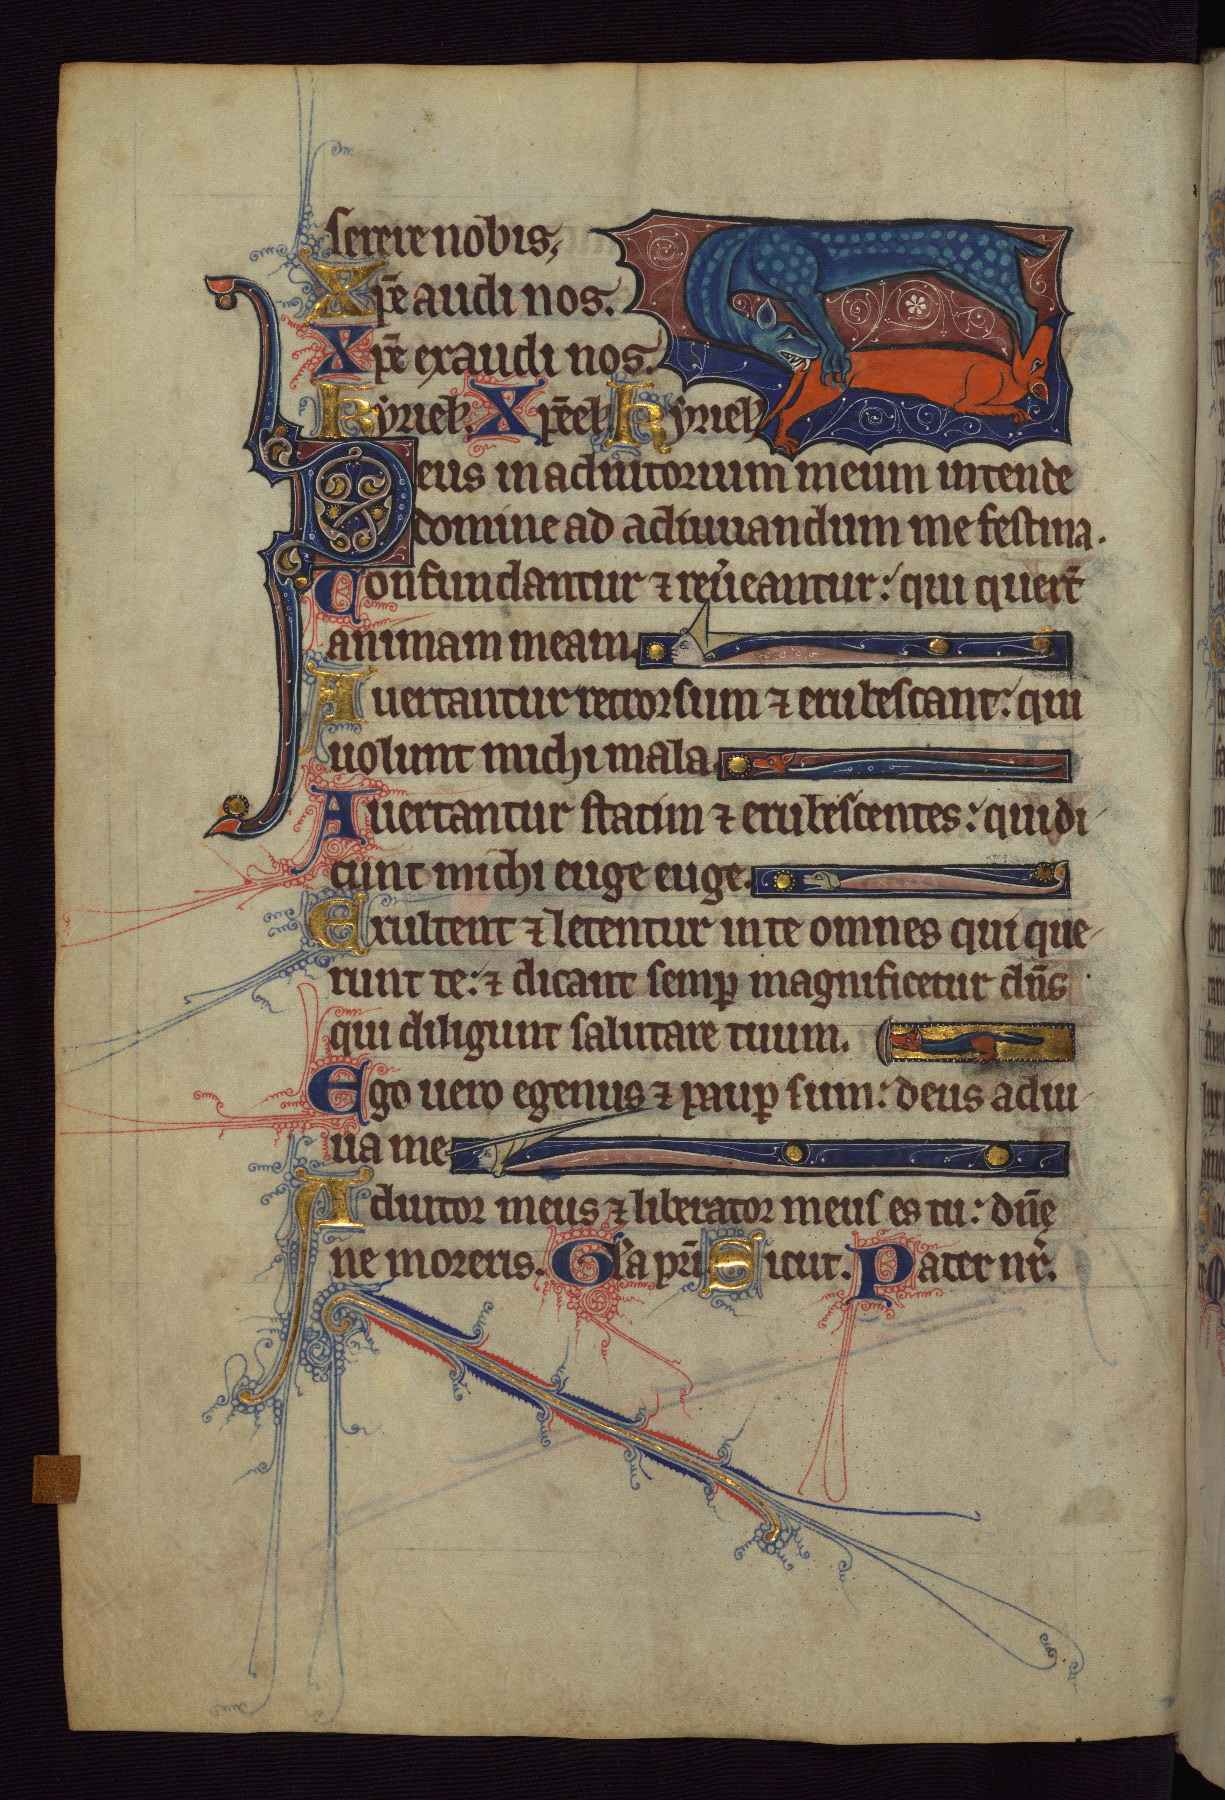 serere nobis,
Xp̄e audi nos.
Xp̄e exaudi nos.
Kyriel. Xp̄eel. Kyriel.
Deus in adiutorium meum intende
domine ad adiuuandum me festina.
Confundantur ⁊ reu̓eantur: qui quer̄t
animam meam.
Auertantur retrorsum ⁊ erubescant: qui
uolunt michi mala.
Auertantur statim ⁊ erubescentes: qui di
cunt michi euge euge.
Exultent ⁊ letentur in te omnes qui que
runt te: ⁊ dicant semꝑ magnificetur dn̄s
qui diligunt salutare tuum.
Ego uero egenus ⁊ pauꝑ sum: deus adiu
ua me
Adiutor meus ⁊ liberator meus es tu: dn̄e
ne moreris. Gl̓a pr̄i Sicut. Pater nr̄.